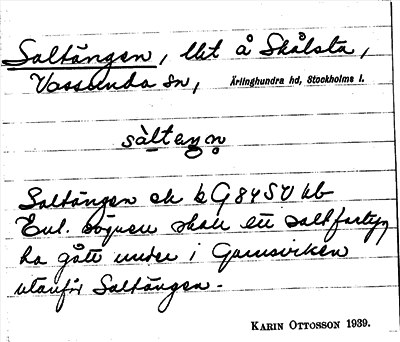 Saltängen, lht å Skålsta,
Vassunda sn, Ärlinghundra hd, Stockholms l.
sàltęŋn
Saltängen ek bG84SV hb
Enl. sägnen skall ett saltfartyg
ha gått under i Garnsviken
utanför Saltängen.
KARIN OTTOSSON 1939.